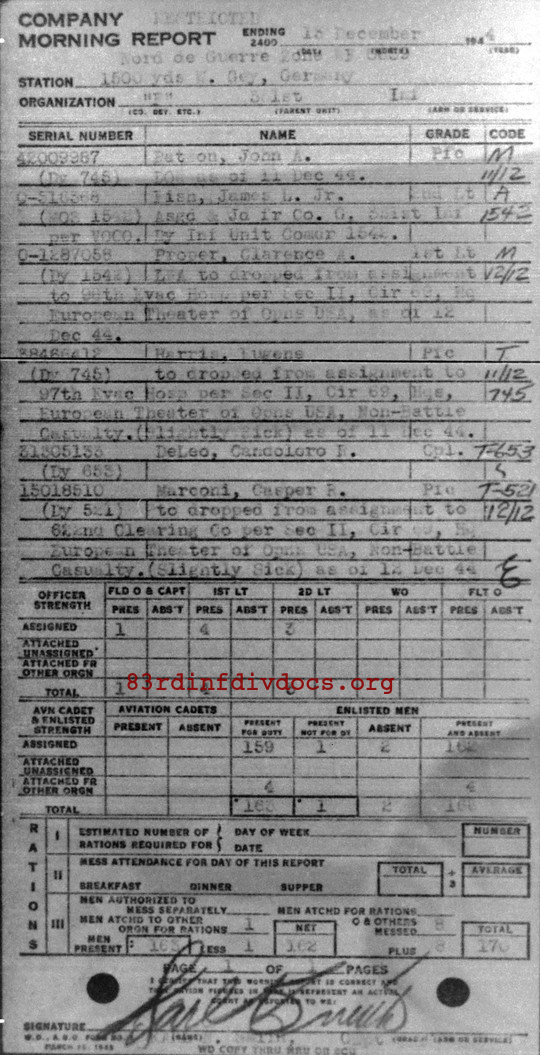 COMPANY RESTRICTED
MORNING REPORT ENDING 2400 13 December 1944
(DAY) (MONTH) (YEAR)
Nord de Guerre Zone
STATION 1500 yds W. Gey, Germany
ORGANIZATION "F" 331st Inf
(CO. BRY. ETC.) (PARENT UNIT) (ARM OR SERVICE)
SERIAL NUMBER NAME GRADE CODE
42009987 Patton, John A. Pfc M
(Dy 745) as of 11 Dec 44. 11/12
O-516368 Fish, James L. Jr. 2nd Lt A
(MOS 1542) Asgd & Jd fr Co. G, 331st Inf 1542
per VOCO. Dy Inf Unit Comdr 1542.
O-1287058 Proper, Clarence A. 1st Lt M
(Dy 1542) to dropped from assignment 12/12
to Evac Hosp per Sec II, Cir 69, Hq
European Theater of Opns USA, as of 12
Dec 44.
38466412 Harris, Eugene Pfc T
(Dy 745) to dropped from assignment to 11/12
97th Evac Hosp per Sec II, Cir 69, Hqs, 745
European Theater of Opns USA, Non-Battle
Casualty.(Slightly Sick) as of 11 Dec 44.
31305135 DeLeo, Candoloro Cpl. T-653
(Dy 653)
15018510 Marconi, Casper R. Pfc T-521
(Dy 521) to dropped from assignment to 12/12
62nd Clearing Co per Sec II, Cir 69, Hq
European Theater of Opns USA, Non-Battle
Casualty.(Slightly Sick) as of 12 Dec 44 E
OFFICER STRENGTH FLD O & CAPT 1ST LT 2D LT WO FLT O
PRES ABS'T PRES ABS'T PRES ABS'T PRES ABS'T PRES ABS'T
ASSIGNED 1 4 3
ATTACHED UNASSIGNED
ATTACHED FR OTHER ORGN
TOTAL 1 4 3
83rdinfdivdocs.org
AVN CADET & ENLISTED STRENGTH AVIATION CADETS ENLISTED MEN
PRESENT ABSENT PRESENT FOR DUTY PRESENT NOT FOR DY ABSENT PRESENT AND ABSENT
ASSIGNED 159 1 2 162
ATTACHED UNASSIGNED
ATTACHED FR OTHER ORGN 4 4
TOTAL 163 1 2 166
RATIONS
I ESTIMATED NUMBER OF RATIONS REQUIRED FOR { DAY OF WEEK DATE NUMBER
II MESS ATTENDANCE FOR DAY OF THIS REPORT TOTAL ÷ 3 AVERAGE
BREAKFAST DINNER SUPPER
III MEN AUTHORIZED TO MESS SEPARATELY MEN ATCHD FOR RATIONS
MEN ATCHD TO OTHER ORGN FOR RATIONS 1 NET O & OTHERS MESSED 8 TOTAL
MEN PRESENT 163 LESS 1 162 PLUS 8 170
PAGE 1 OF 1 PAGES
I CERTIFY THAT THIS MORNING REPORT IS CORRECT AND
SIGNATURE
W.D., A.G.O. FORM
MARCH 1943
WD COPY THRU MRU OR SCU